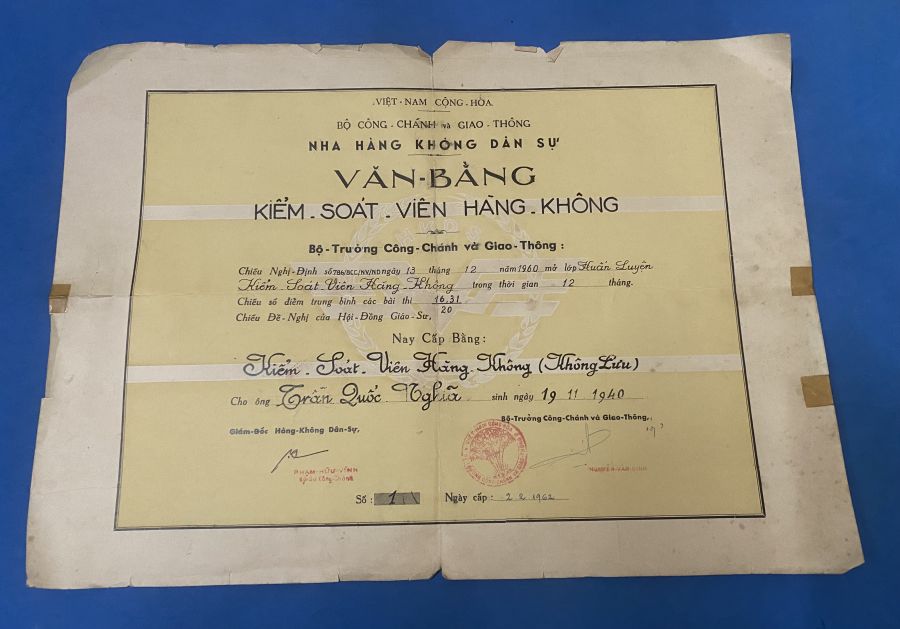 VIỆT - NAM CỘNG - HÒA
BỘ CÔNG - CHÁNH và GIAO - THÔNG
NHA HÀNG KHÔNG DÂN SỰ
VĂN-BẰNG
KIỂM - SOÁT - VIÊN HÀNG - KHÔNG
Bộ - Trưởng Công-Chánh và Giao-Thông :
Chiếu Nghị-Định số 786/BCC/NV/ND ngày 13 tháng 12 năm 1960 mở lớp Huấn Luyện
Kiểm - Soát Viên Hàng - Không trong thời gian 12 tháng.
Chiếu số điểm trung bình các bài thi 16.31
20
Chiếu Đề-Nghị của Hội-Đồng Giáo-Sư,
Nay Cấp Bằng :
Kiểm - Soát - Viên Hàng - Không (Không Lưu)
Cho ông Trần Quốc Nghĩa sinh ngày 19 11 1940
Giám-Đốc Hàng-Không Dân-Sự,
Bộ-Trưởng Công-Chánh và Giao-Thông,
PHẠM-HỮU-VĨNH
Kỹ-Sư Công-Chánh
Số : 1
Ngày cấp : 2 2 1962